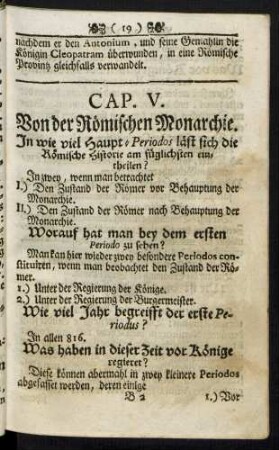 ( 19 )
nachdem er den Antonium, und seine Gemahlin die
Königin Cleopatram überwunden, in eine Römische
Provintz gleichfalls verwandelt.
CAP. V.
Von der Römischen Monarchie.
In wie viel Haupt-Periodos läst sich die
Römische Historie am füglichsten ein-
theilen?
In zwey, wenn man betrachtet
I.) Den Zustand der Römer vor Behauptung der
Monarchie.
II.) Den Zustand der Römer nach Behauptung der
Monarchie.
Worauf hat man bey dem ersten
Periodo zu sehen?
Man kan hier wieder zwey besondere Periodos con-
stituiren, wenn man beobachtet den Zustand der Rö-
mer.
1.) Unter der Regierung der Könige.
2.) Unter der Regierung der Burgermeister.
Wie viel Jahr begreifft der erste Pe-
riodus?
In allen 816.
Was haben in dieser Zeit vor Könige
regieret?
Diese können abermahl in zwey kleinere Periodos
abgefasset werden, deren einige
B 2 1.) Vor